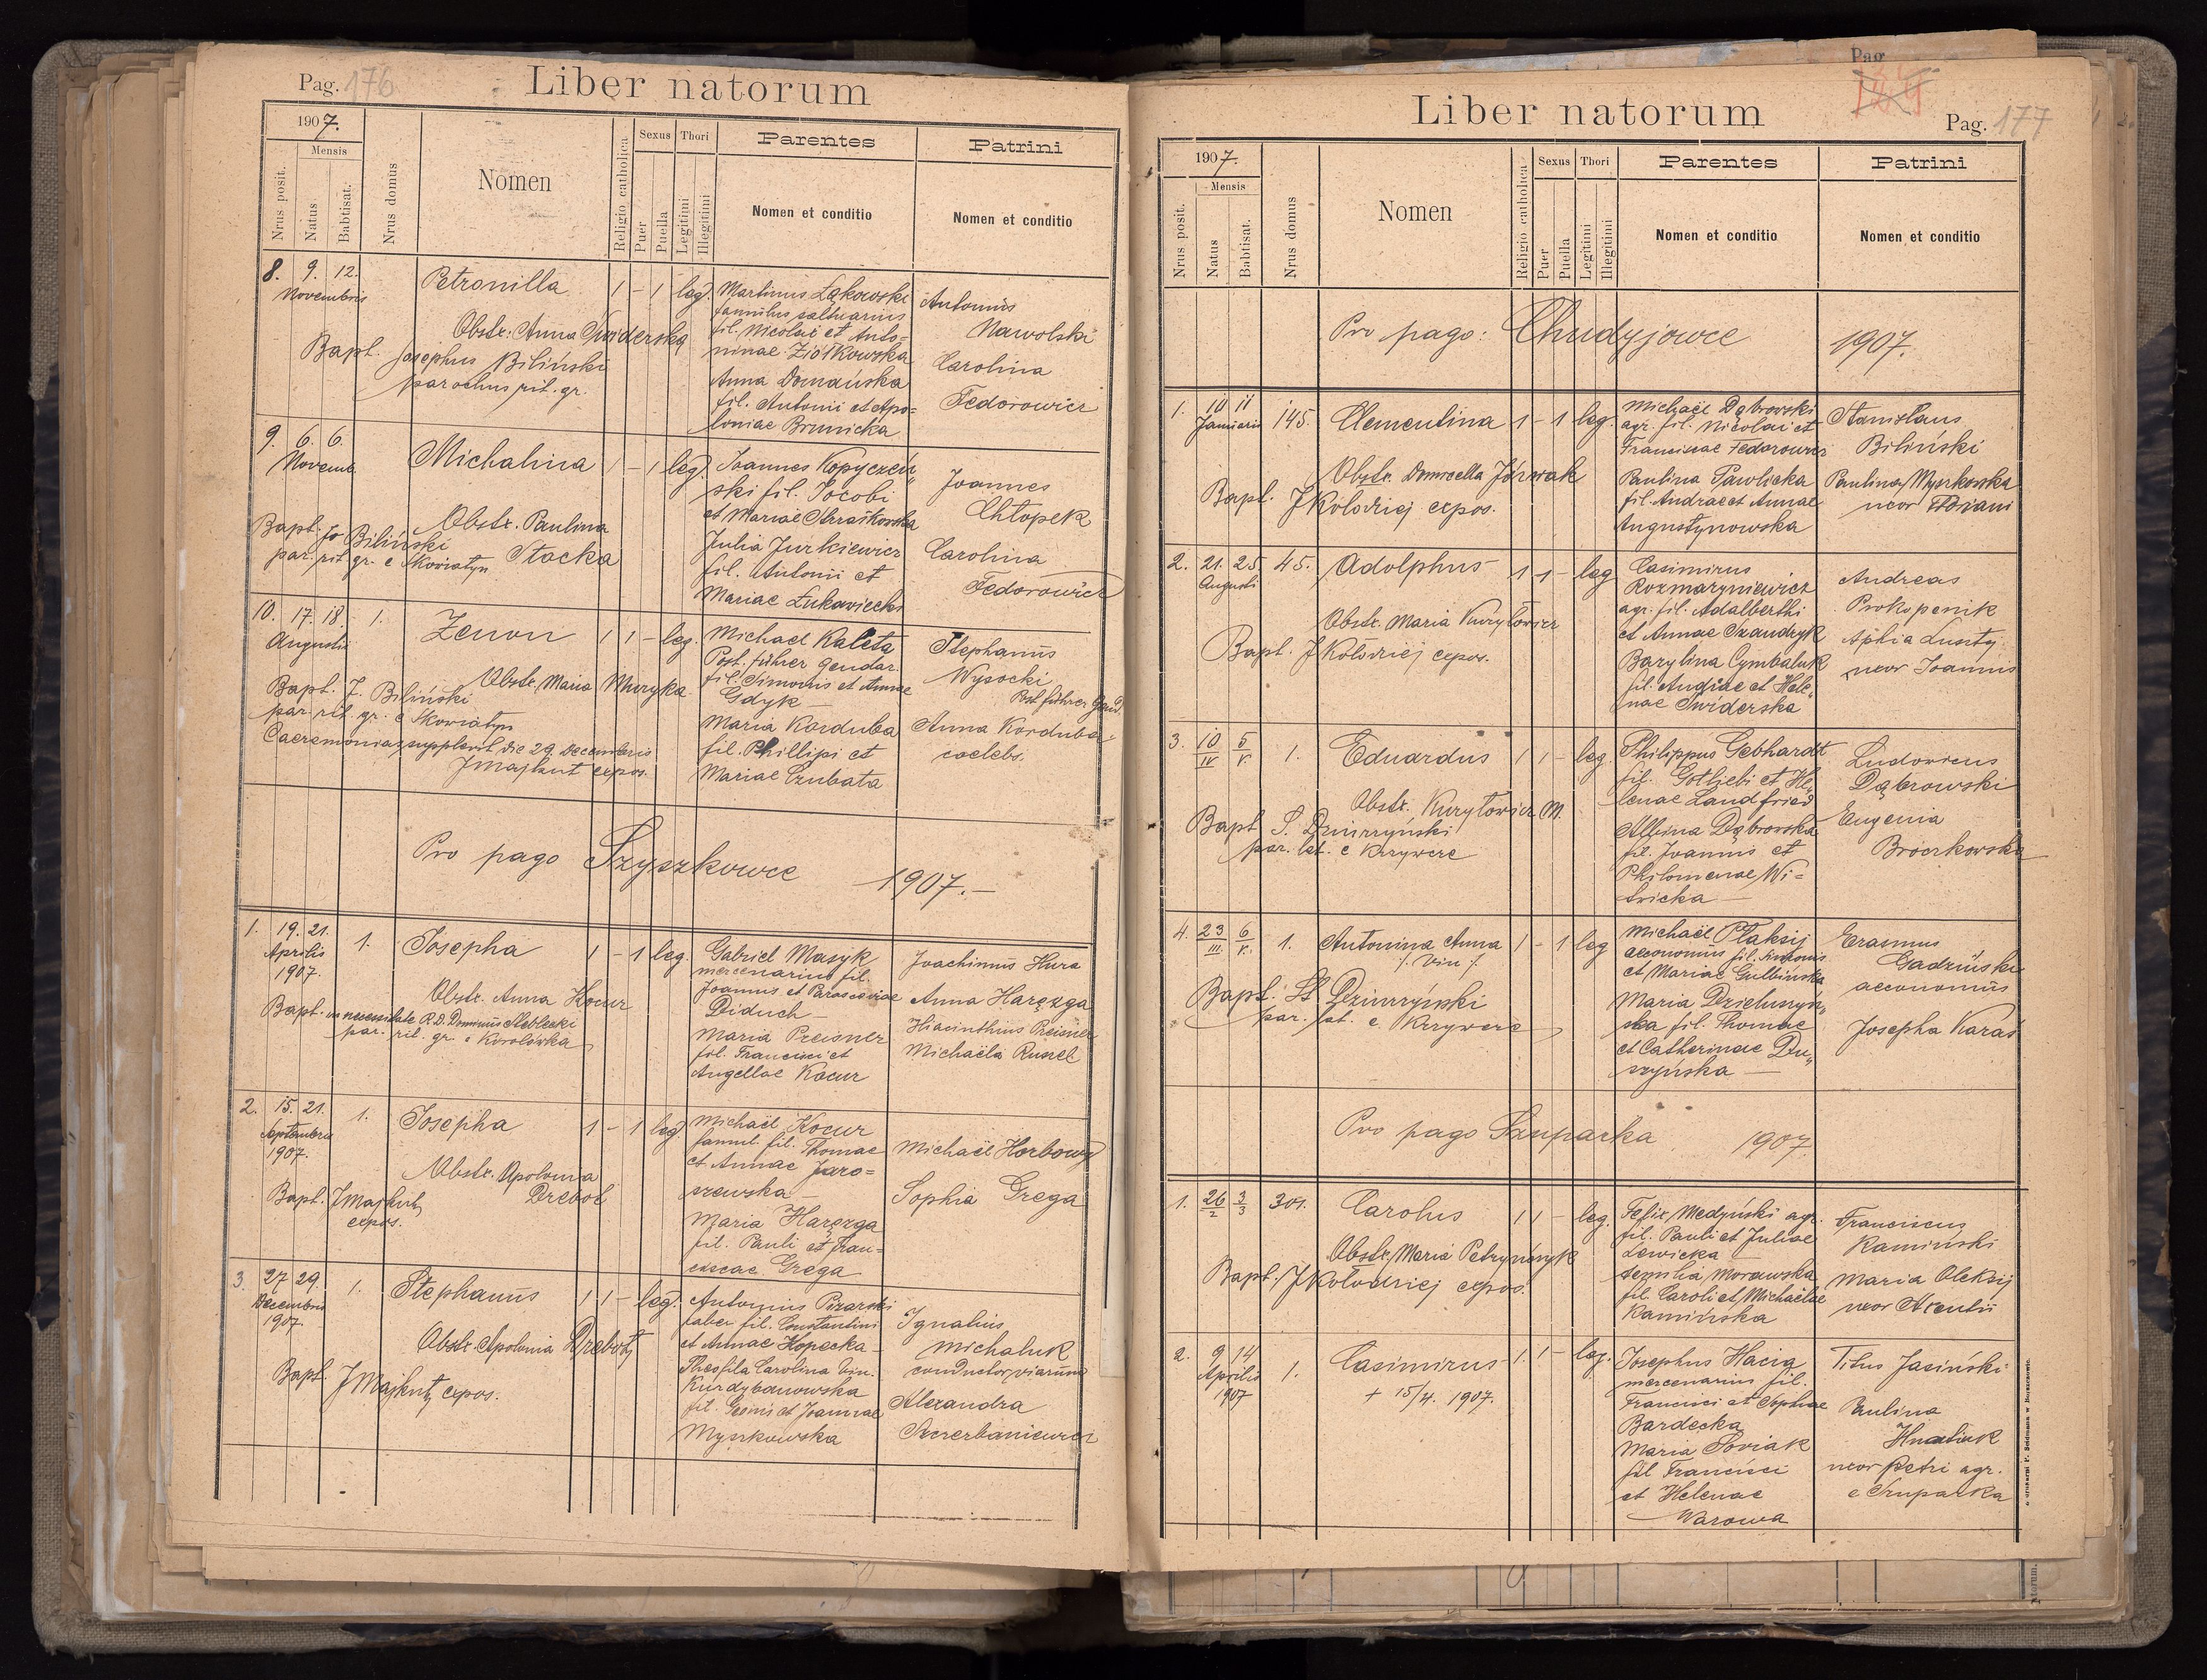 Pag. 176
Liber natorum
1907.
Mensis
Nrus posit.
Natus
Babtisat.
Nrus domus
Nomen
Religio catholica
Sexus
Puer
Puella
Thori
Legitimi
Illegitimi
Parentes
Nomen et conditio
Patrini
Nomen et conditio
8. 9. 12. Petronilla 1 - 1 leg.
Novembris
Obstr. Anna Świderska
Bapt. Josephus Biliński
parochus rit. gr.
Martinus Łąkowski
famulus saltuarius
fil. Nicolai et Anto=
ninae Ziółkowska
Anna Domańska
fil. Antonii et Apo=
loniae Brunicka
Antonius
Nawolski
Carolina
Fedorowicz
9. 6. 6. Michalina 1 - 1 leg.
Novemb.
Obstr. Paulina
Stacka
Bapt. Jo Biliński
par. rit gr. e Skowiatyn
Joannes Kopyczeń„
ski fil. Jacobi
et Mariae Strzałkowska
Julia Jurkiewicz
fil. Antonii et
Mariae Łukawiecki
Joannes
Chłopek
Carolina
Fedorowicz
10. 17. 18. 1. Zenon 1 1 - leg.
Augusti
Obstr. Maria Muzyka
Bapt. J. Biliński
par. rit. gr. e Skowiatyn
Caeremonias supplevit die 29 Decembris
J Majkut expos.
Michael Kaleta
Post. führer gendar.
fil. Simonis et Annae
Gdyk -
Maria Korduba
fil. Phillipi et
Mariae Czubata
Stephanus
Wysocki
Post führer Gend.
Anna Korduba
coelebs.
Pro pago Szyszkowce 1907.-
1. 19. 21. 1. Josepha 1 - 1 leg.
Aprilis
1907.
Obstr. Anna Kocur
Bapt. in necessitate R. D. Dominus Steblecki
par. rit. gr. e Korolówka
Gabriel Masyk
mercenarius fil.
Joannis et Parasceviae
Diduch -
Maria Preisner
fil. Francisci et
Angellae Kocur
Joachimus Hura
Anna Haręzga
Hiacinthius Preisner
Michaëla Rusnel
2. 15. 21. 1. Josepha 1 - 1 leg.
Septembris
1907.
Obstr. Apolonia
Drebot
Bapt. J Majkut
expos.
Michaël Kocur
famul. fil. Thomae
et Annae Jaro=
szewska -
Maria Haręzga
fil. Pauli et Fran=
ciscae Grega
Michaël Horbowy
Sophia Grega
3. 27 29. 1. Stephanus 1 1 - leg.
Decembris
1907.
Obstr. Apolonia Drebot
Bapt. J Majkut expos.
Antonius Pizarski
faber fil. Constantini
et Annae Kopecka -
Theofila Carolina bin.
Kurdybanowska
fil. Leonis et Joannae
Myszkowska
Ignatius
Michaluk
conductor viarum
Alexandra
Szczerbaniewicz
Liber natorum
Pag.
Pag. 177
1907.
Mensis
Nrus posit.
Natus
Babtisat.
Nrus domus
Nomen
Religio catholica
Sexus
Puer
Puella
Thori
Legitimi
Illegitimi
Parentes
Nomen et conditio
Patrini
Nomen et conditio
Pro pago: Chudyjowce 1907.
1. 10 11 145. Clementina 1 - 1 leg.
Januarii
Obstr. Domicella Józwiak
Bapt. J Kołodziej expos.
Michaël Dąbrowski
agr. fil. Nicolai et
Franciscae Fedorowicz
Paulina Pawlicka
fil. Andreae et Annae
Augustynowska
Stanislaus
Biliński
Paulina Myszkowska
uxor Floriani
2. 21. 25. 45. Adolphus 1 1 - leg
Augusti
Obstr. Maria Kuryłowicz
Bapt. J Kołodziej expos.
Casimirus
Rozmaryniewicz
agr. fil. Adalberthi
et Annae Szandryk
Barylina Cymbaluk
fil. Andreae et Hele„
nae Świderska
Andreas
Prokopenik
Aphia Luszty
uxor Joannis
3. 10/IV 5/V. 1. Eduardus 1 1 - leg.
Obstr. Kuryłowicz M.
Bapt. S. Dziurzyński
par. lat. e Krzywcze
Philippus Gebhardt
fil. Gotliebi et He„
lenae Landfried
Albina Dąbrowska
fil. Joannis et
Philomenae Wi=
tricka -
Ludovicus
Dąbrowski
Eugenia
Broczkowska
4. 23/III. 6/V. 1. Antonina Anna 1 - 1 leg
/. bin /.
Bapt. St Dziurzyński
par. lat. e. Krzywcze
Michaël Płaksij
aeconomus fil. Antonis
et Mariae Gulbińska
Maria Dzieluszyń„
ska fil. Thomae
et Catherinae Du„
szyńska -
Erasmus
Gadziński
aeconomus
Josepha Karaś
Pro pago Szuparka 1907
1. 26/2 3/3 301. Carolus 1 1 - leg.
Obstr. Maria Petrynszyk
Bapt. J Kołodziej expos.
Felix Medyński agr.
fil. Pauli et Juliae
Lewicka -
Aemilia Morawska
fil. Caroli et Michaëlae
Kamińska
Franciscus
Kamiński
Maria Oleksij
uxor Arentii
2. 9 14 1. Casimirus 1. 1 - leg.
Aprilis
1907
+ 15/4. 1907.
Josephus Hacia
mercenarius fil.
Francisci et Sophiae
Bardecka
Maria Soviak
fil Francisci
et Helenae
Warowa
Titus Jasiński
Paulina
Hnatiuk
uxor Petri agr.
e Szuparka